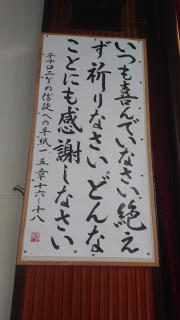 いつも喜んでいなさい。絶え
ず祈りなさい。どんな
ことにも感謝しなさい。
テサロニケの信徒への手紙一、五章十六〜十八